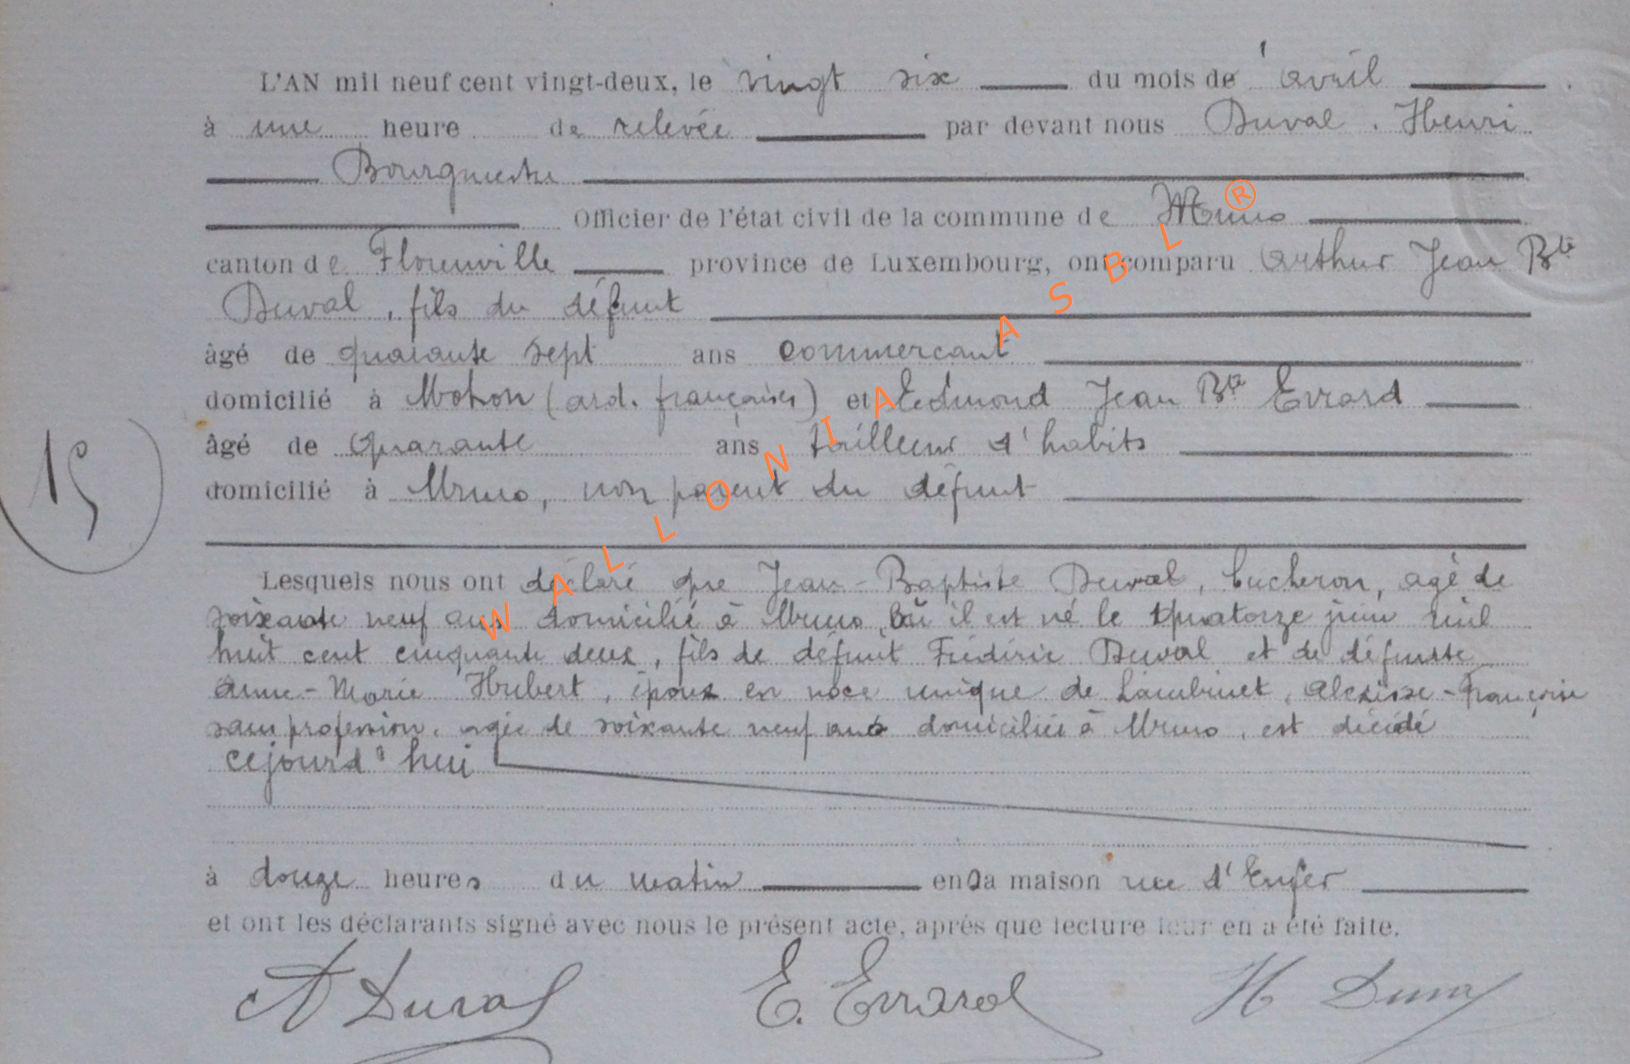 L'AN mil neuf cent vingt-deux, le vingt six du mois de avril
à une heure de relevée par devant nous Duval, Henri
Bourgmestre
Officier de l'état civil de la commune de Muno
canton de Florenville province de Luxembourg, ont comparu Arthur Jean Bte
Duval, fils du défunt
âgé de quarante sept ans commercant
domicilié à Mohon (ard. françaises) et Edmond Jean Bte Evrard
âgé de quarante ans tailleur d'habits
domicilié à Muno, non parent du défunt
15
Lesquels nous ont déclaré que Jean-Baptiste Duval, bucheron, agé de
soixante neuf ans domicilié à Muno, où il est né le quatorze juin mil
huit cent cinquante deux, fils de défunt Frédéric Duval et de défunte
Anne-Marie Hubert, époux en noce unique de Lambinet, Françoise
sans profession, agée de soixante neuf ans domiciliée à Muno, est décédé
cejourd'hui
à douze heures du matin en sa maison rue d'Enfer
et ont les déclarants signé avec nous le présent acte, après que lecture leur en a été faite.
A Duval E. Evrard H Duval
WALLONIA ASBL ®